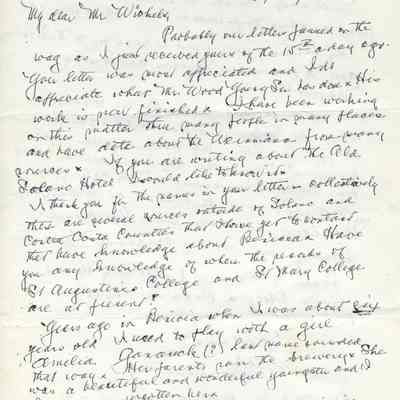 My dear Mr Wichels,
Probably our letters passed in the
way as I just received yours of the 15th a day ago.
Your letter was most appreciated and I do
appreciate what Mr Wood Young Sr. has done. His
work is now finished. I have been working
on this matter thru many people in many places
and have data about the from many
sources. If you are writing about the Old
Solano Hotel I would like to know it.
I thank you for the names in your letter. Collectively
there are several sources outside of Solano and
Contra Costa Counties that I have yet to contact
that have knowledge about Benicia. Have
you any knowledge of where the records of
St Augustine College and St Mary College
are at present?
Years ago in Benicia when I was about six
years old I used to play with a girl
Amelia (?) last name sounded
that way. Her parents ran the brewery. She
was a beautiful and wonderful youngster and I
her